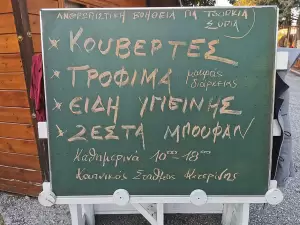 ΑΝΘΡΩΠΙΣΤΙΚΗ ΒΟΗΘΕΙΑ ΓΙΑ ΤΟΥΡΚΙΑ
ΣΥΡΙΑ
* ΚΟΥΒΕΡΤΕΣ
* ΤΡΟΦΙΜΑ μακράς
διάρκειας
* ΕΙΔΗ ΥΓΙΕΙΝΗΣ
* ΖΕΣΤΑ ΜΠΟΥΦΑΝ
Καθημερινά 10⁰⁰-18⁰⁰
Καπνικός Σταθμός Κατερίνης